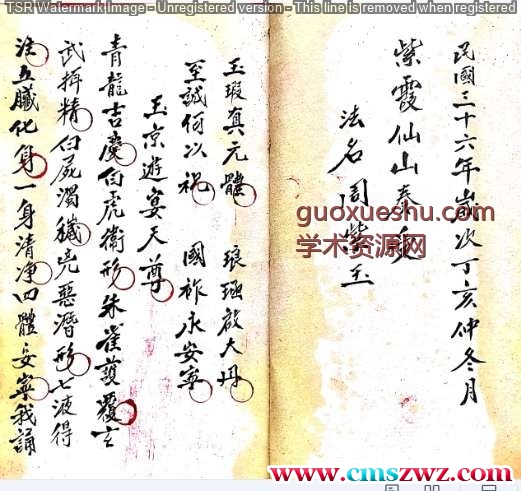 TSR Watermark Image - Unregistered version - This line is removed when registered
民國三十六年歲次丁亥仲冬月
紫霞仙山泰
法名周紫玉
guoxueshu.com
学术资源网
玉瑕真元體 琅函啟大丹
至誠何以祝 國祚永安寧
玉京遊宴天尊
青龍吉慶白虎衛形朱雀覆玄
武拜精白屍濁穢兇惡潛形七液得
注五臟化身一身清净四體安寧我誦
www.cmszwz.com